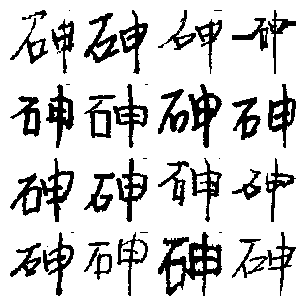 砷砷砷砷
砷砷砷砷
砷砷砷砷
砷砷砷砷